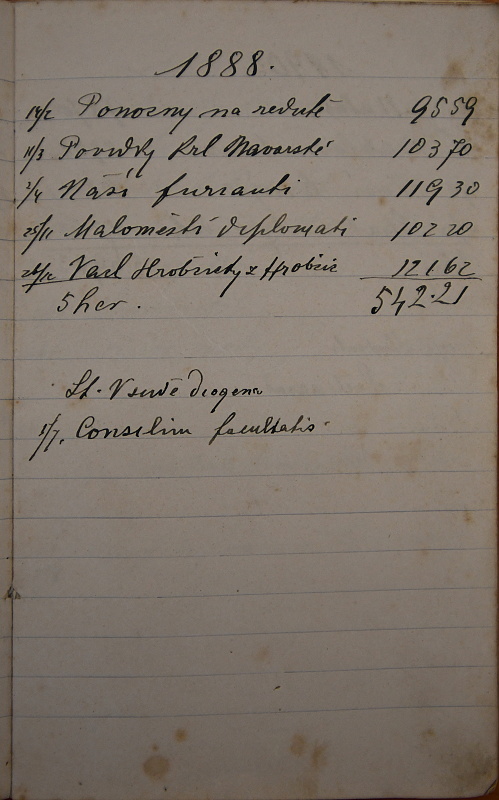 1888.
14/2 Ponocny na redutě 9559
11/3 Povídky Krl Navarské 10370
2/4 Náši furianti 11930
25/11 Maloměstí diplomati 10220
26/12 Václ Hrobčický z Hrobčic 12162
5 her. 542.21
St. V sudě diogena
1/7. Consilium facultatis.